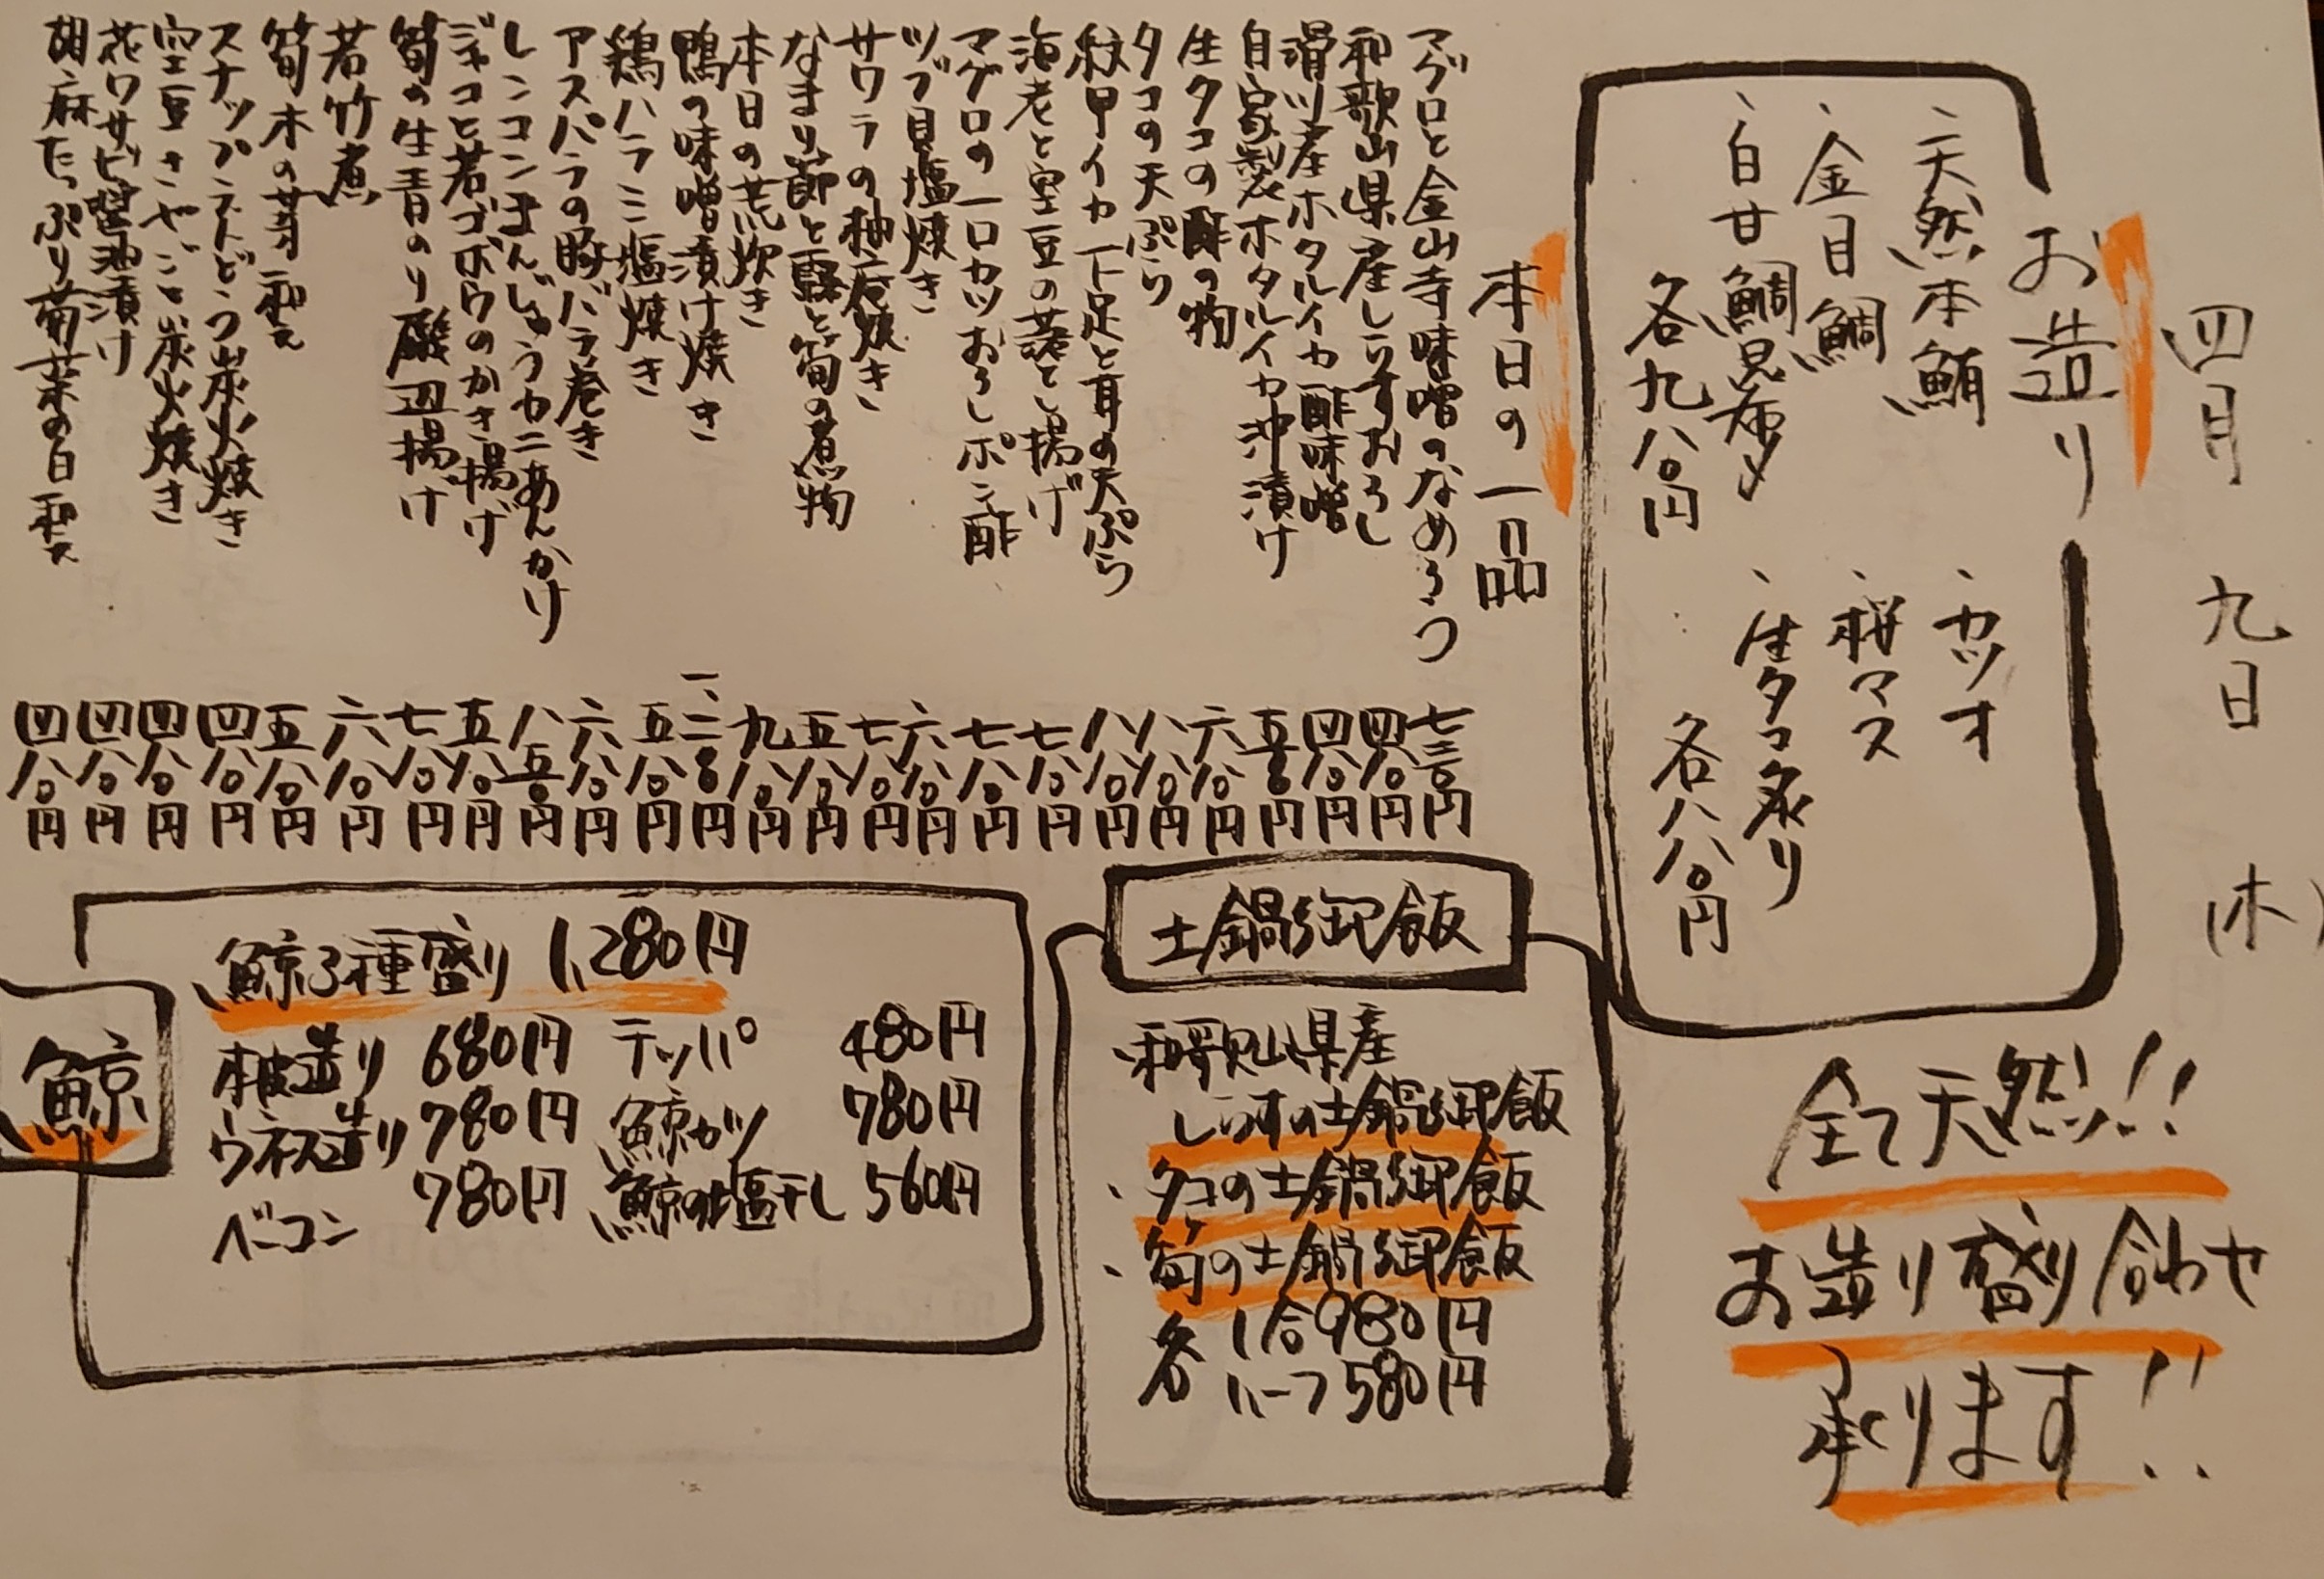 四月九日(木)
お造り
、天然本鮪
、金目鯛
、白甘鯛昆布〆
各九八〇円
、カツオ
、桜マス
、生タコ炙り
各八八〇円
全て天然!!
お造り盛り合わせ
承ります!!
本日の一品
マグロと金山寺味噌のなめろう 七三〇円
和歌山県産しらすおろし 四八〇円
滑川産ホタルイカ酢味噌 四八〇円
自家製ホタルイカ沖漬け 五八〇円
生タコの酢の物 六八〇円
タコの天ぷら 八八〇円
紋甲イカ下足と耳の天ぷら 八八〇円
海老と空豆の蓑と揚げ 七八〇円
マグロの一口カツおろしポン酢 七八〇円
ツブ貝塩焼き 六八〇円
サワラの柚庵焼き 七八〇円
なまり節と蕗と筍の煮物 五八〇円
本日の荒炊き 九八〇円
鴨の味噌漬け焼き 一、二八〇円
鶏ハラミ塩焼き 五八〇円
アスパラの豚バラ巻き 六八〇円
レンコンまんじゅうカニあんかけ 八五〇円
ジャコと若ゴボウのかき揚げ 五八〇円
筍の生青のり磯辺揚げ 七八〇円
若竹煮 六八〇円
筍木の芽和え 五八〇円
スナップえんどう炭火焼き 四八〇円
空豆さやごと炭火焼き 四八〇円
花ワサビ醤油漬け 四八〇円
胡麻たっぷり菊菜の白和え 四八〇円
土鍋御飯
、和歌山県産
しらすの土鍋御飯
、タコの土鍋御飯
、筍の土鍋御飯
各 1合980円
ハーフ580円
鯨
鯨3種盛り 1,280円
本皮造り 680円 テッパ 480円
ウネス造り 780円 鯨カツ 780円
ベーコン 780円 鯨の塩干し 560円